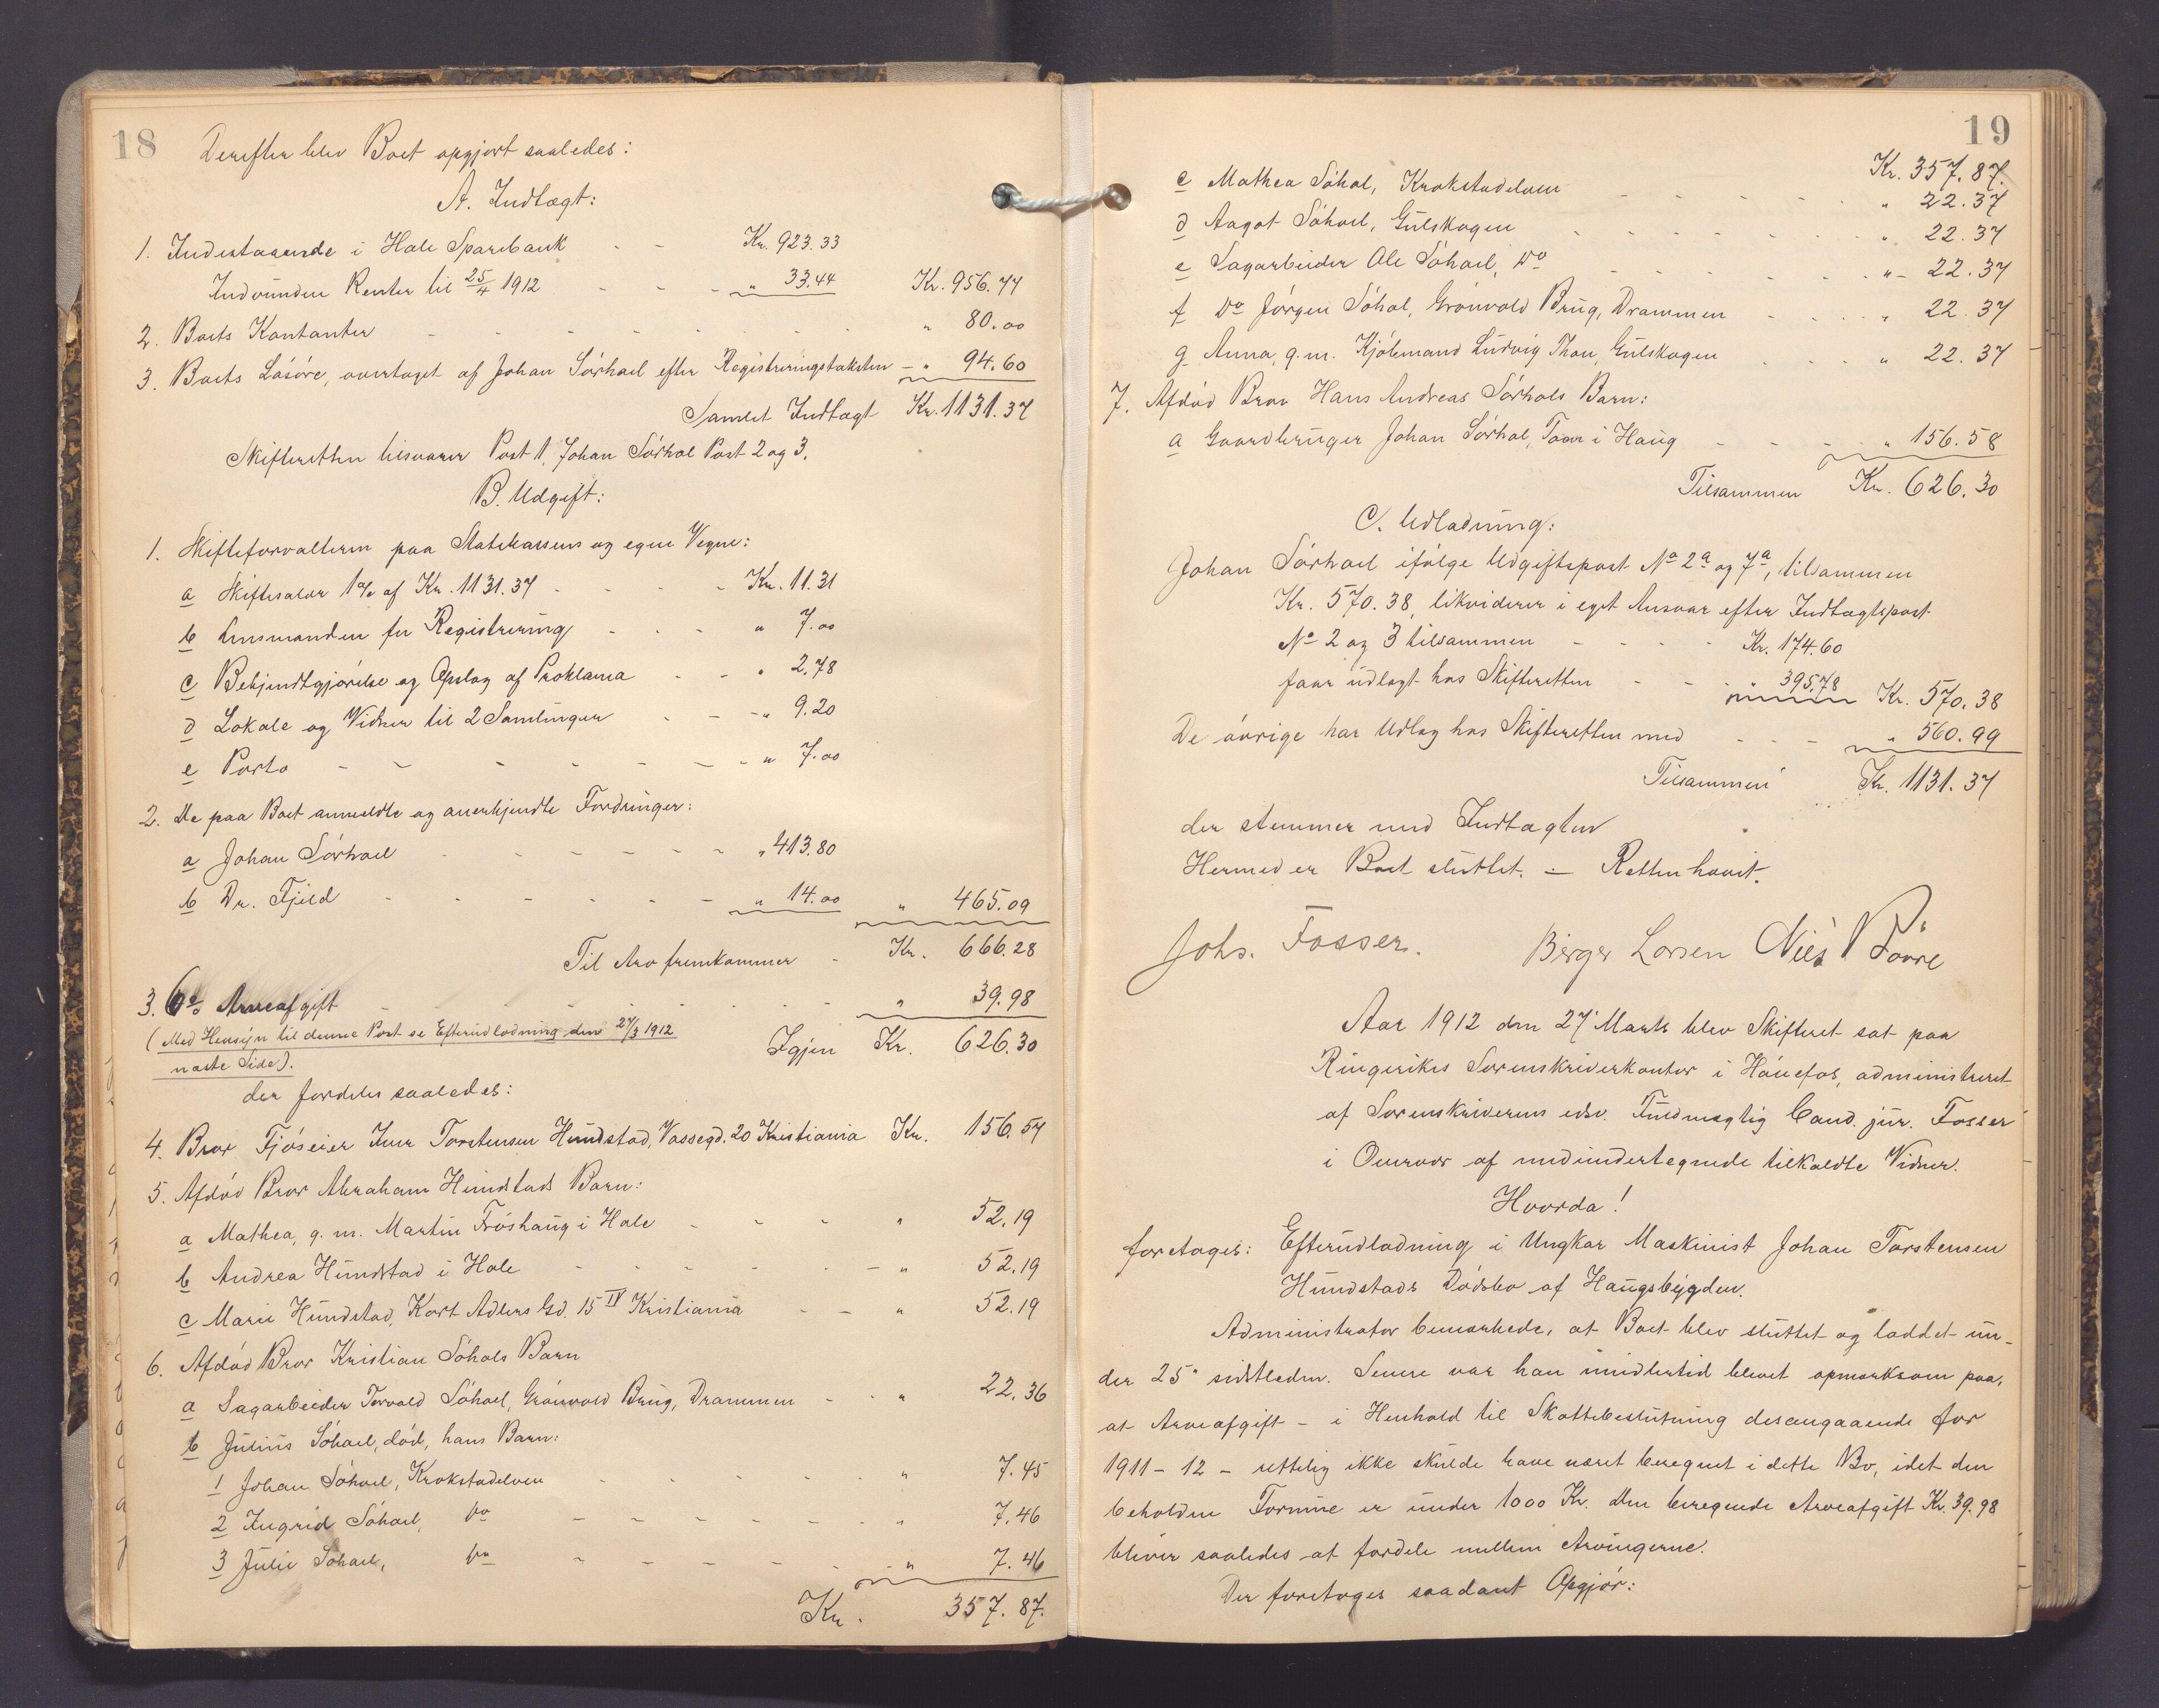 18
Derefter blev Boet opgjort saaledes:
A. Indtægt:
1. Indestaaende i Hole Sparebank - - Kr. 923.33
Indvundne Renter til 25/4 1912 - - - " 33.44 Kr. 956.77
2. Boets Kontanter - - - - - - " 80.00
3. Boets Løsøre, overtaget af Johan Sørhoel efter Registreringstaksten - " 94.60
Samlet Indtægt Kr. 1131.37
Skifteretten tilsvarer Post 1, Johan Sørhol Post 2 og 3.
B. Udgift:
1. Skifteforvalteren paa Statskassens og egne Vegne:
a Skiftesalær 1% af Kr. 1131.37 - - - Kr. 11.31
b Lensmanden for Registrering - - - " 7.00
c Bekjendtgjørelse og Opslag af Proklama - - " 2.78
d Lokale og Vidner til 2 Samlinger - - - " 9.20
e Porto - - - - - - - " 7.00
2. De paa Boet anmeldte og anerkjendte Fordringer:
a Johan Sørhoel - - - - - - " 413.80
b Dr. Fjeld - - - - - - " 14.00 " 465.09
Til Arv fremkommer - Kr. 666.28
3. 6% Arveafgift - - - - - - - " 39.98
(Med Hensyn til denne Post se Efterudlodning den 27/3 1912
næste Side).
Igjen Kr. 626.30
der fordeles saaledes:
4. Bror Fjøseier Iver Torstensen Hundstad, Vossegd. 20 Kristiania Kr. 156.57
5. Afdød Bror Abraham Hundstads Barn:
a Mathea, g. m. Martin Frøshaug i Hole - - - " 52.19
b Andrea Hundstad i Hole - - - - - " 52.19
c Marie Hundstad, Kort Adlers Gd. 15 IV Kristiania - - " 52.19
6. Afdød Bror Kristian Søhols Barn
a Sagarbeider Torvald Søhoel, Grønvold Brug, Drammen - - " 22.36
b Julius Søhoel, død, hans Barn:
1 Johan Søhoel, Krokstadelven - - - - - " 7.45
2 Ingrid Søhoel, Do - - - - - - " 7.46
3 Julie Søhoel, Do - - - - - - " 7.46
Kr. 357.87.
19
Kr. 357.87.
c Mathea Søhol, Krokstadelven - - - - - " 22.37
d Aagot Søhoel, Gulskogen - - - - - - " 22.37
e Sagarbeider Ole Søhoel, Do - - - - - " - 22.37
f Do Jørgen Søhol, Grønvold Brug, Drammen - - - " 22.37
g Anna, g. m. Kjøbmand Ludvig Thon, Gulskogen - - - " 22.37
7. Afdød Bror Hans Andreas Sørhols Barn:
a Gaardbruger Johan Sørhol, Toen i Haug - - - - " 156.58
Tilsammen Kr. 626.30
C. Udlodning:
Johan Sørhoel ifølge Udgiftspost No 2a og 7a, tilsammen
Kr. 570.38, likviderer i eget Ansvar efter Indtægtspost
No 2 og 3 tilsammen - - - - Kr. 174.60
faar udlagt hos Skifteretten - - - " 395.78 Kr. 570.38
De øvrige har Udlæg hos Skifteretten med - - - " 560.99
Tilsammen Kr. 1131.37
der stemmer med Indtægten
Hermed er Boet sluttet. - Retten hævet.
Johs. Fosser. Birger Larsen Nils
Aar 1912 den 27' Marts blev Skifteret sat paa
Ringerikes Sorenskriverkontor i Hønefos, administreret
af Sorenskriverens edsv. Fuldmægtig Cand. jur. Fosser
i Overvær af medundertegnede tilkaldte Vidner.
Hvorda!
foretages: Efterudlodning i Ungkar Maskinist Johan Torstensen
Hundstads Dødsbo af Haugsbygden.
Administrator bemærkede, at Boet blev sluttet og loddet un-
der 25' sidstleden. Senere var han imidlertid blevet opmærksom paa,
at Arveafgift - i Henhold til Skattebeslutning desangaaende for
1911-12 - rettelig ikke skulde have været beregnet i dette Bo, idet den
beholdne Formue er under 1000 Kr. Den beregnede Arveafgift Kr. 39.98
bliver saaledes at fordele mellem Arvingerne.
Der foretoges saadant Opgjør: